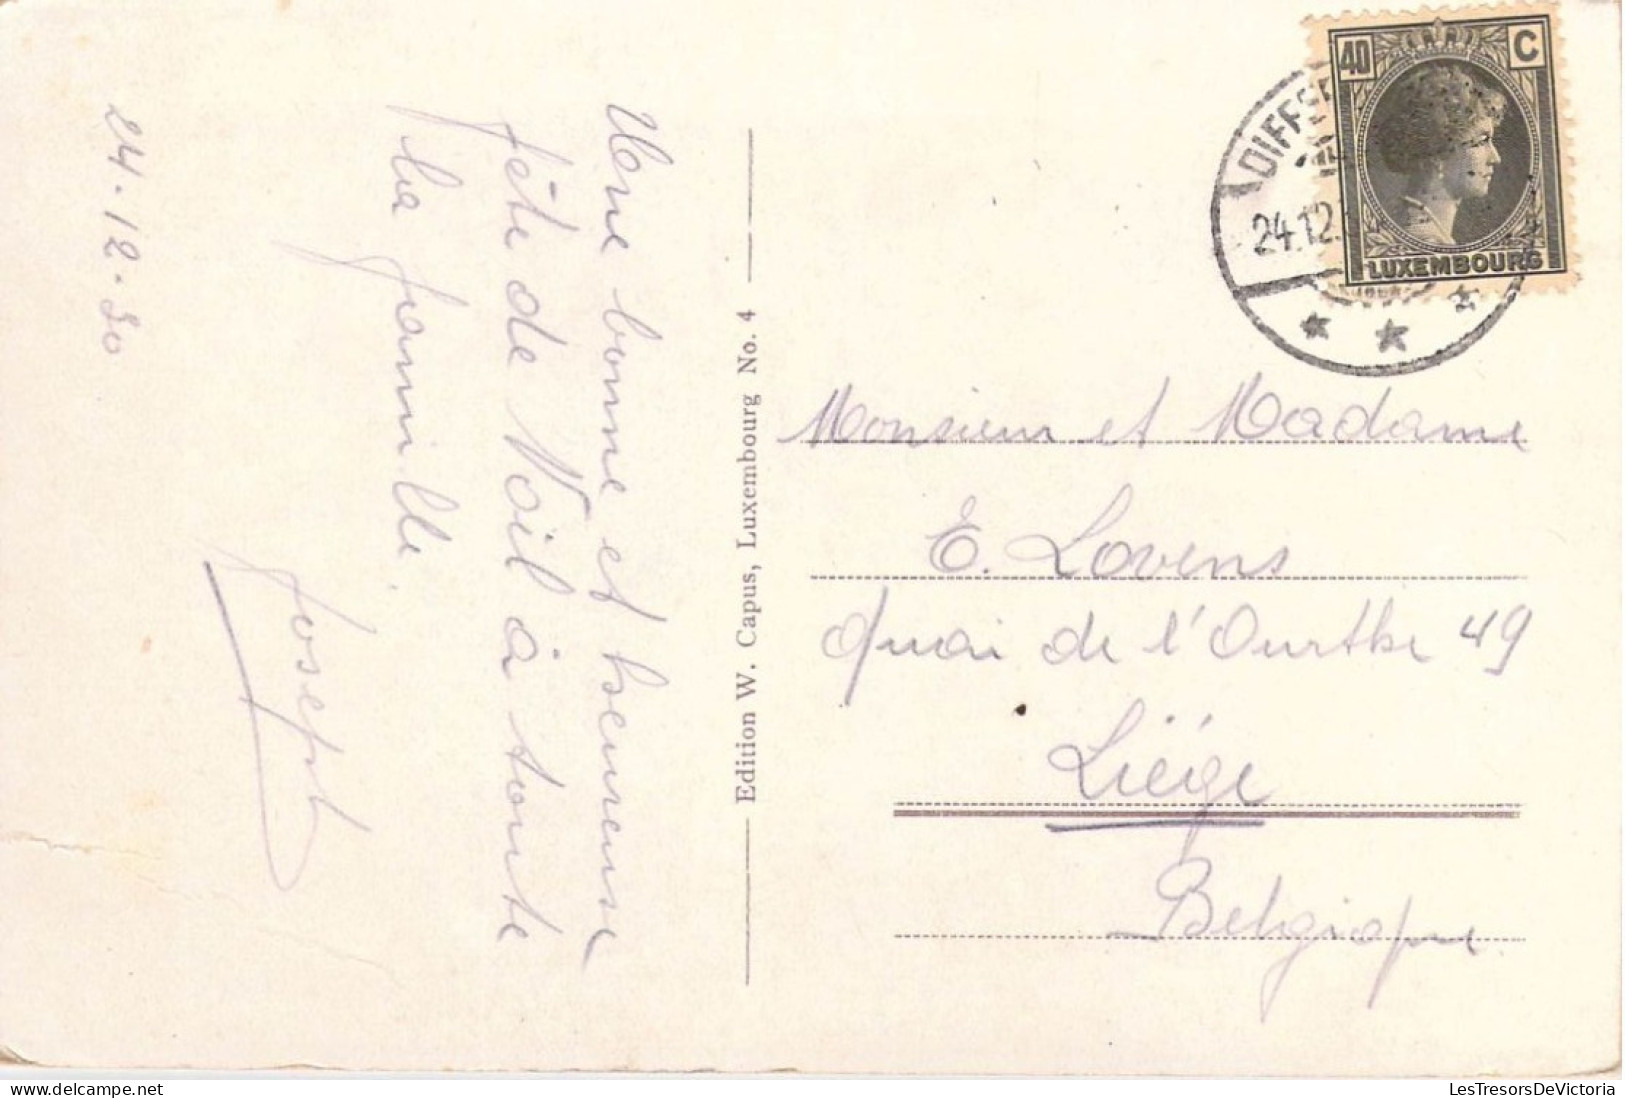 Une bonne et heureuse
fête de Noël à toute
la famille.
Joseph
24.12.30
Edition W. Capus, Luxembourg No. 4
40 C
LUXEMBOURG
24.12.
Monsieur et Madame
E. Lovens
Quai de l'Ourthe 49
Liége
Belgique
LesTresorsDeVictoria